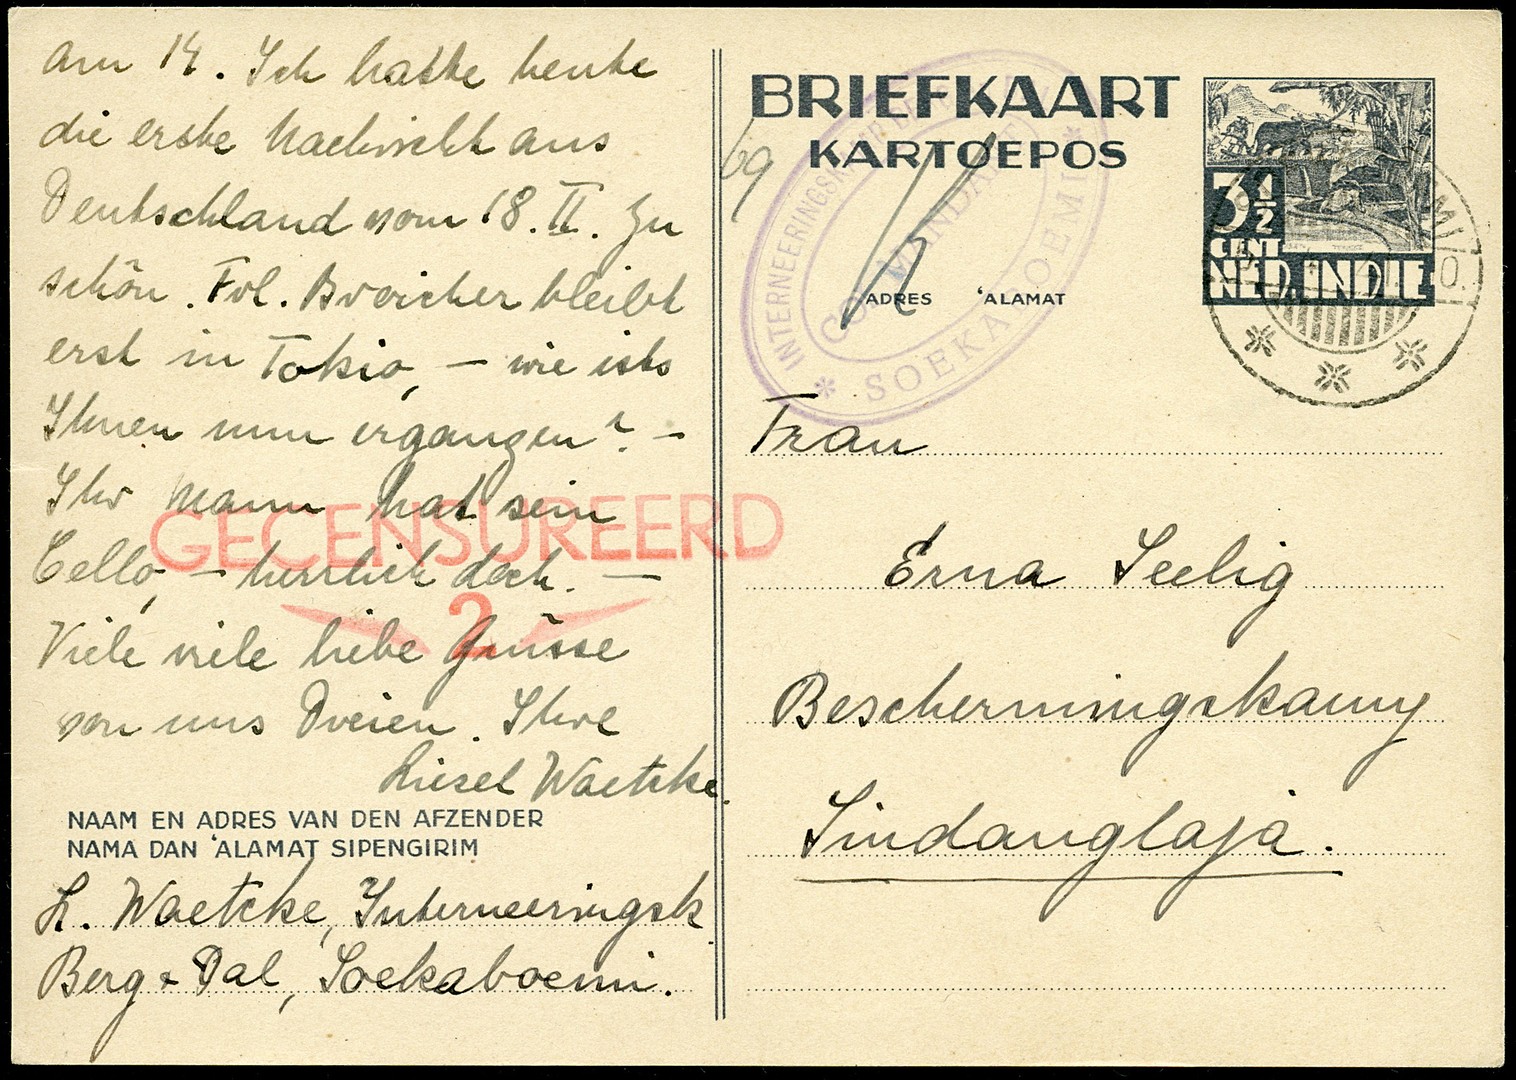 am 14. Ich hatte heute
die erste Nachricht aus
Deutschland vom 18. II. Zu
schön. Frl. Breicher bleibt
erst in Tokio, – wie ists
Ihnen nun ergangen? –
Ihr Mann hat sein
Cello, – herrlich doch. –
Viele viele liebe Grüsse
von uns Dreien. Ihre
Liesel Waetcke.
GECENSUREERD
2
NAAM EN ADRES VAN DEN AFZENDER
NAMA DAN 'ALAMAT SIPENGIRIM
L. Waetcke, Interneeringsk
Berg & Dal, Soekaboemi.
BRIEFKAART
KARTOEPOS
69
INTERNEERINGSKAMP
COMMANDANT
* SOEKABOEMI *
ADRES 'ALAMAT
3½
CENT
NED. INDIE
Frau
Erna Seelig
Beschermingskamp
Sindanglaja.